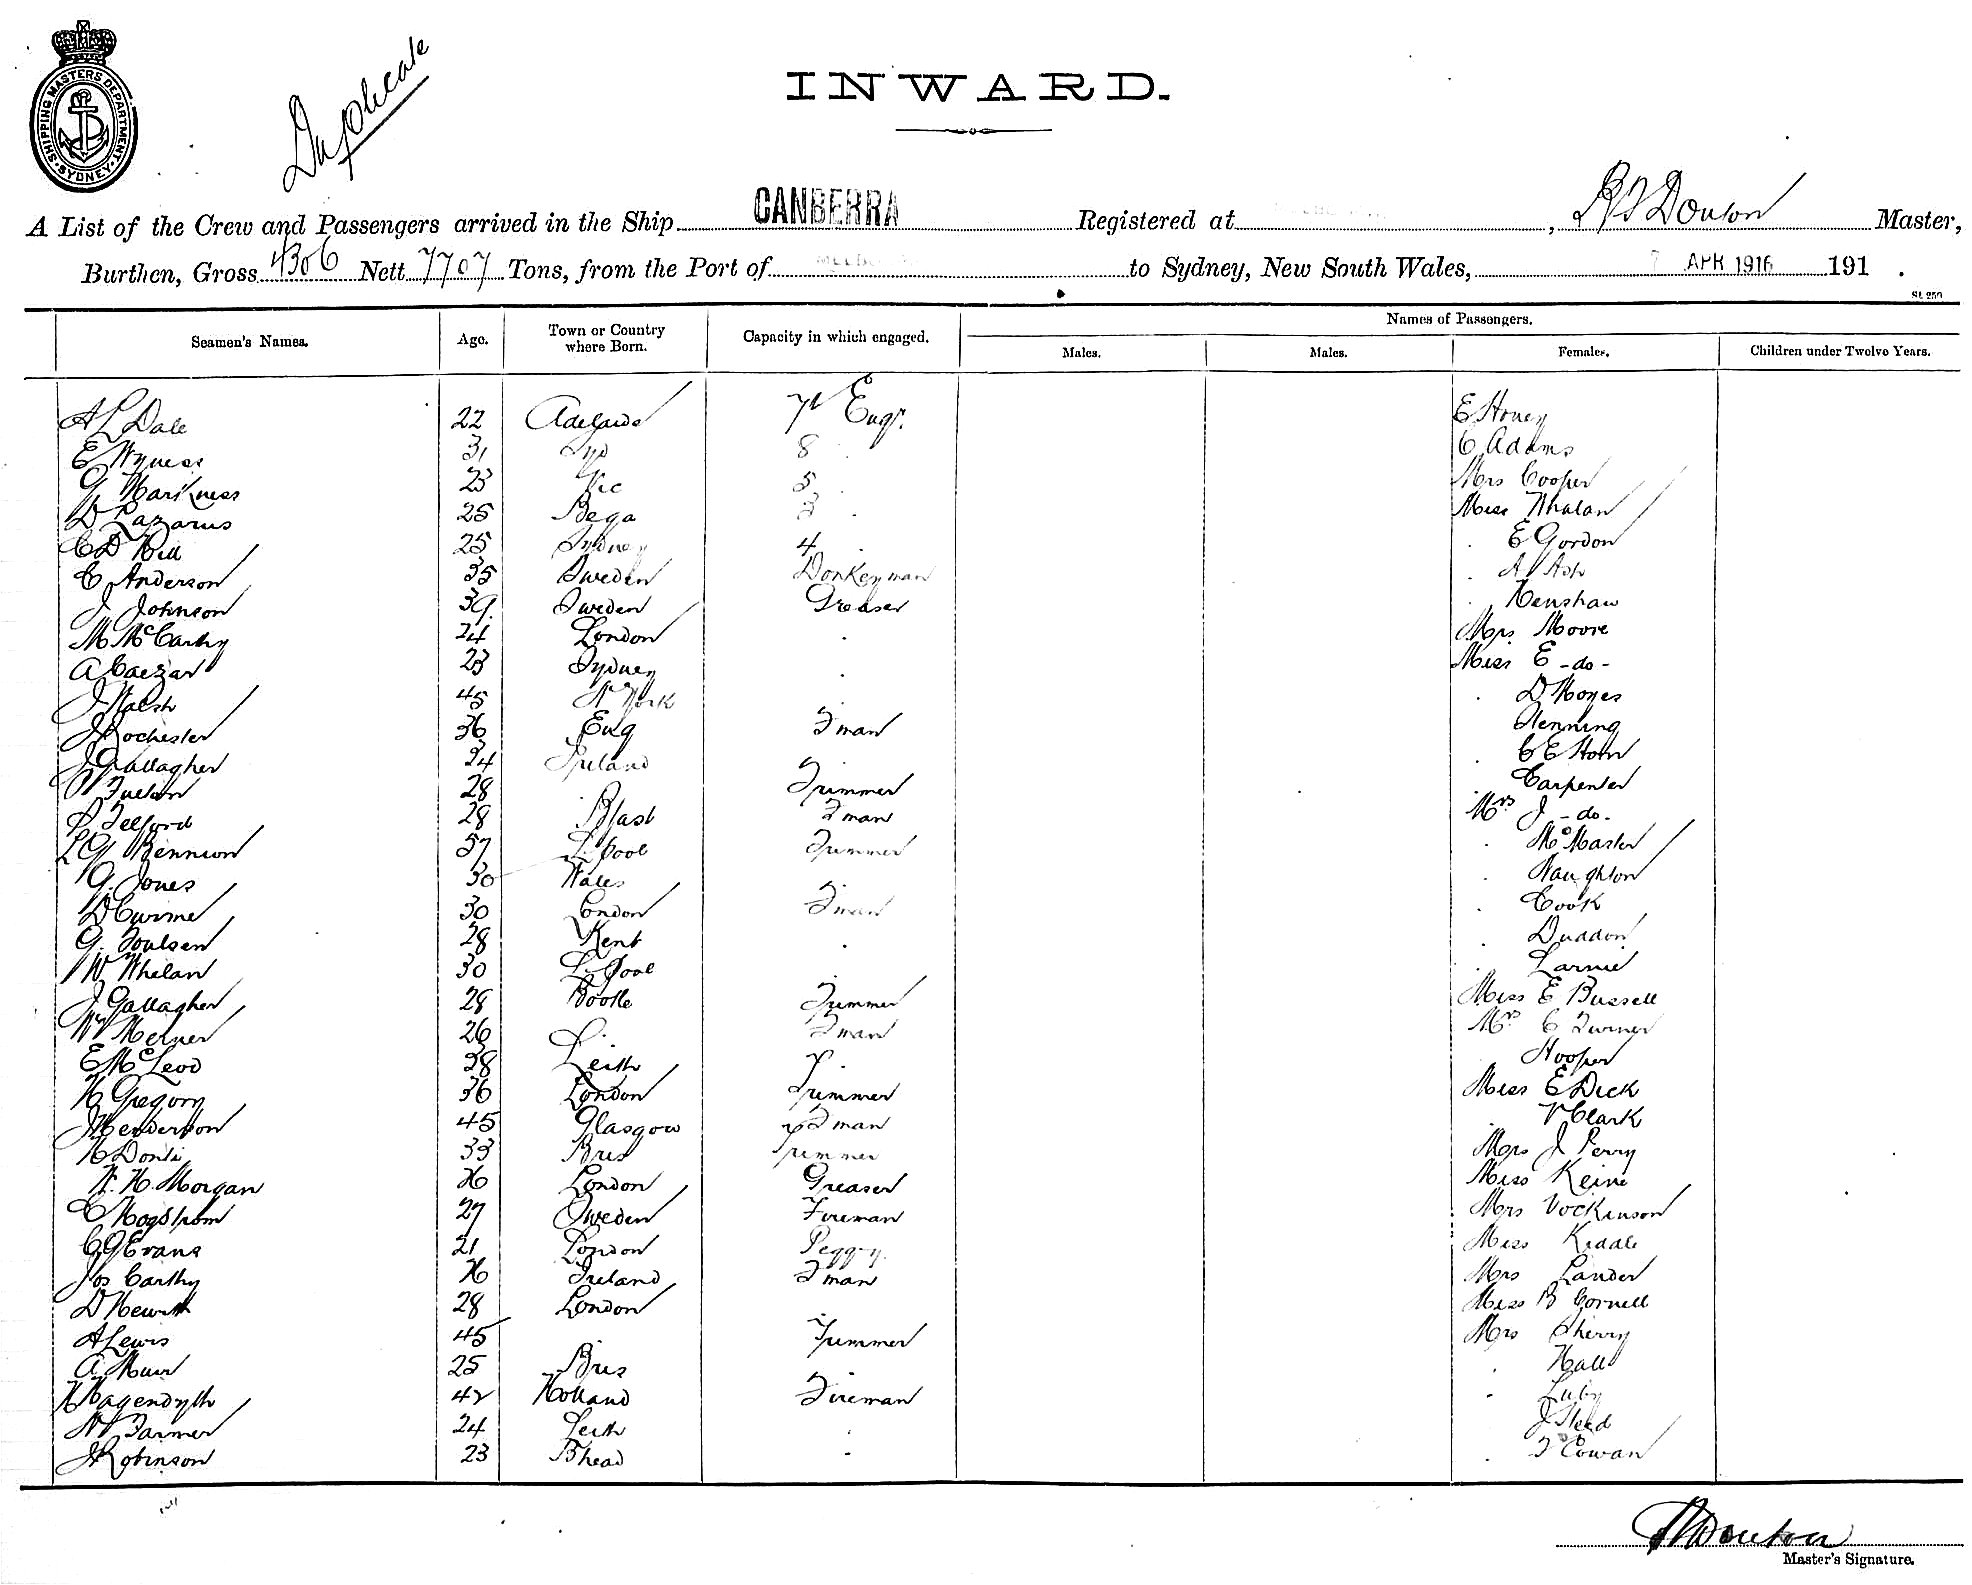 SHIPPING MASTERS DEPARTMENT
SYDNEY
Duplicate
INWARD.
A List of the Crew and Passengers arrived in the Ship CANBERRA Registered at , Master,
Burthen, Gross 4306 Nett 7707 Tons, from the Port of to Sydney, New South Wales, 7 APR 1916 191 .
St. 250
Seamen's Names. Age. Town or Country where Born. Capacity in which engaged. Names of Passengers.
Males. Males. Females. Children under Twelve Years.
A L Dale 22 Adelaide 7th Engr. E Honey
E Wyness 31 8 C Adams
G Harkness 23 Vic 5 Mrs Cooper
D Lazarus 25 Bega 3 Miss Whalan
C D Hill 25 Sydney 4 . E Gordon
C Anderson 35 Sweden Donkeyman . A Ash
J Johnson 39 Sweden Greaser . Henshaw
M McCarthy 24 London . Mrs Moore
A Caezar 23 Sydney . Miss E - do -
J Walsh 45 N York . D Noyes
J Rochester 36 Eng Fman Henning
J Gallagher 24 Ireland . C E Horn
28 Trimmer Carpenter
P Telford 28 Bfast Fman Mrs J - do -
L G Bennion 37 L.pool Trimmer . McMaster
G. Jones 30 Wales . Naughton
D Currie 30 London Fman . Cook
G. Poulsen 28 Kent . . Duddon
W Whelan 30 L.pool . Larnie
J Gallagher 28 Bootle Trimmer Miss E Bussell
W Merner 26 . Fman Mrs C Turner
E McLeod 38 Leith Hooper
H Gregory 36 London Trimmer Miss E Dick
J Henderson 45 Glasgow Fman . V Clark
H 33 Bris Trimmer Mrs J Perry
W. H. Morgan 26 London Greaser Miss Keine
C Hogstrom 27 Sweden Fireman Mrs Vockinson
C G Evans 21 London Peggy. Miss Kiddle
Jos Carthy 26 Ireland Fman Mrs Lander
D Hewitt 28 London Miss B Cornell
A Lewis 45 Trimmer Mrs Sherry
A Muir 25 Bris . Hall
H Hagendyth 42 Holland Fireman - Luby
W Farmer 24 Leith . J Steed
J Robinson 23 Bhead . . F Cowan
Master's Signature.